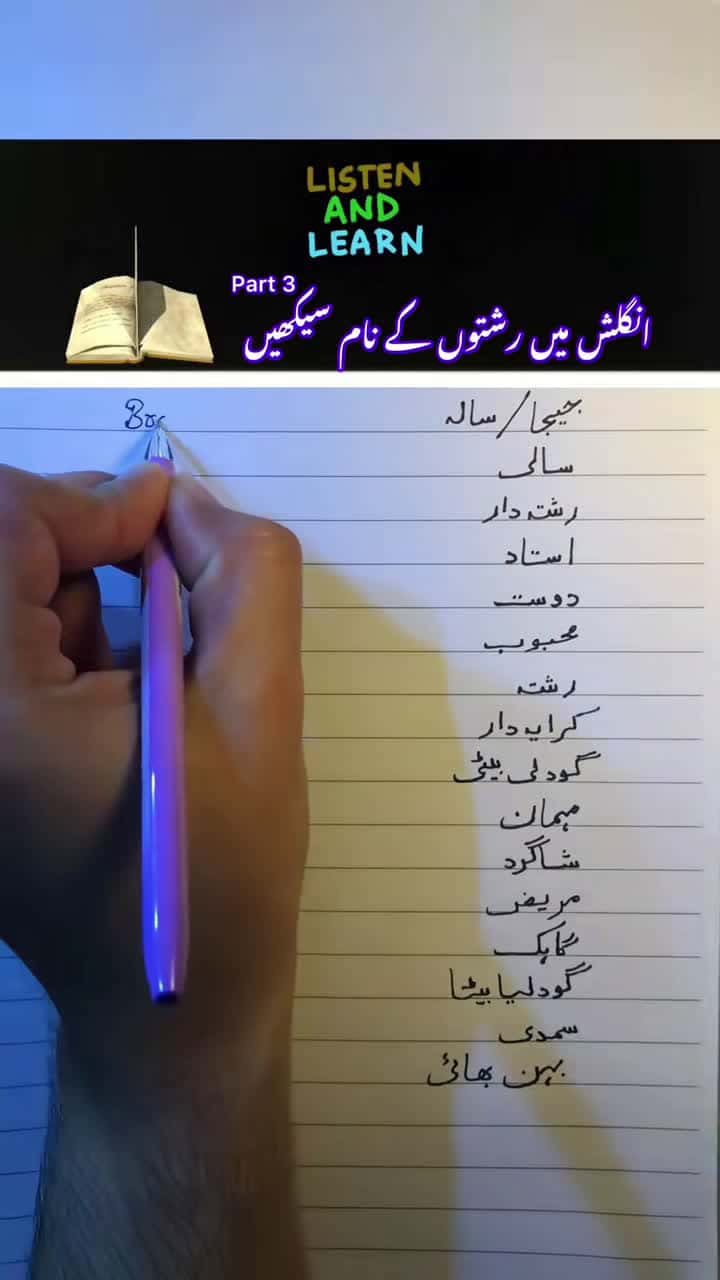 LISTEN
AND
LEARN
Part 3
انگلش میں رشتوں کے نام سیکھیں
جیجا/سالہ
Bro
سالی
رشتہ دار
استاد
دوست
محبوب
رشتہ
کرایہ دار
گود لی بیٹی
مہمان
شاگرد
مریض
گاہک
گود لیا بیٹا
سمدی
بہن بھائی